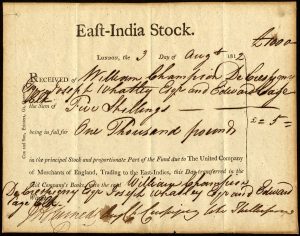 £1000
East-India Stock.
London, the 3 Day of Augst 181
Received of William Champion De Crespigny
Joseph Whatley Esqr and Edward Page
the Sum of Five Shillings £ = 5 =
being in full for One Thousand pounds
in the principal Stock and proportionate Part of the Fund due to The United Company
of Merchants of England, Trading to the East-Indies, this Day transferred in the
said Company's Books unto the said William Champion
De Crespigny Esqr Joseph Whatley Esqr and Edward
Page Esqr
Witness